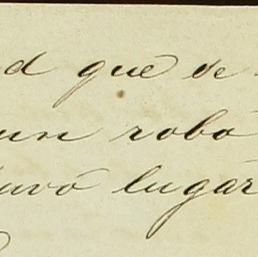 d que se
un robo
tuvo lugar